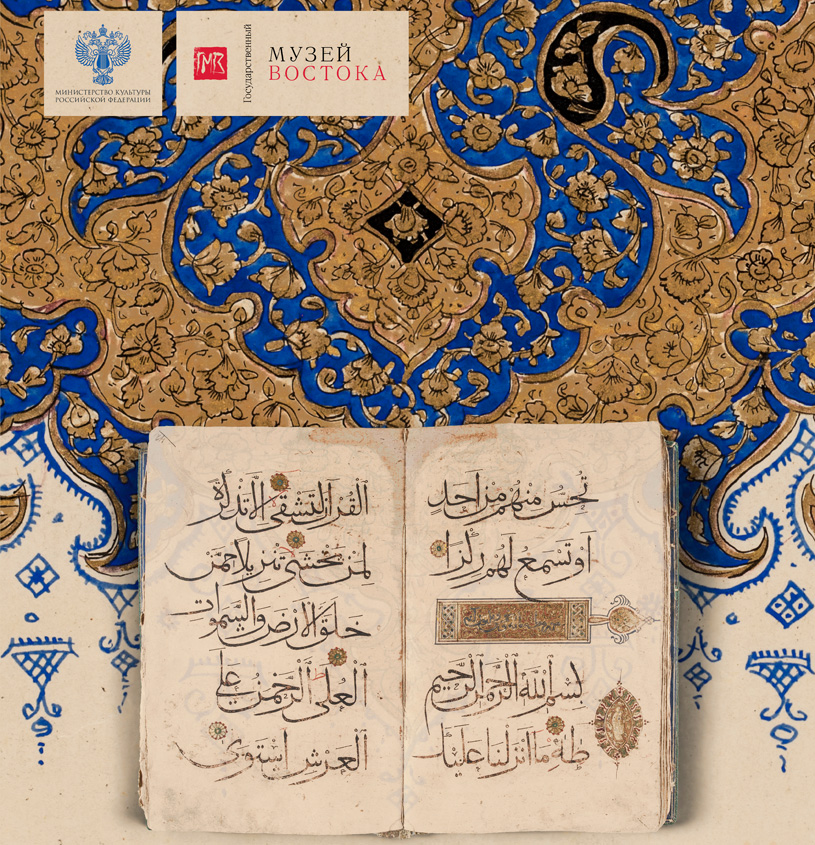 МИНИСТЕРСТВО КУЛЬТУРЫ
РОССИЙСКОЙ ФЕДЕРАЦИИ
ГМВ
Государственный
МУЗЕЙ
ВОСТОКА
تُحِسُّ مِنْهُمْ مِنْ اَحَدٍ
اَوْ تَسْمَعُ لَهُمْ رِكْزًا
بِسْمِ اللّٰهِ الرَّحْمٰنِ الرَّحِيْمِ
طٰهٰ مَا اَنْزَلْنَا عَلَيْكَ
الْقُرْاٰنَ لِتَشْقٰى اِلَّا تَذْكِرَةً
لِمَنْ يَخْشٰى تَنْزِيْلًا مِمَّنْ
خَلَقَ الْاَرْضَ وَالسَّمٰوَاتِ
الْعُلٰى اَلرَّحْمٰنُ عَلَى
الْعَرْشِ اسْتَوٰى